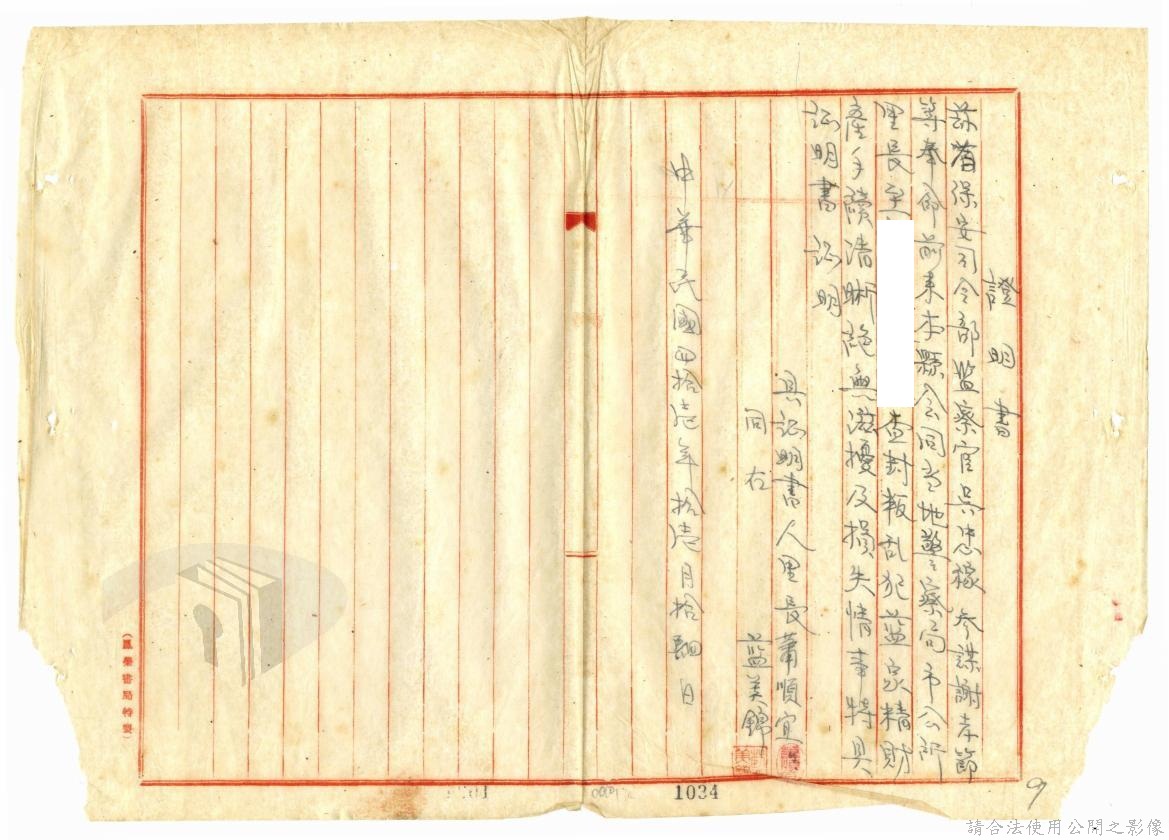 證明書
茲有保安司令部監察官吳忠穟參謀謝孝節
等奉命前來本縣会同当地警察局市公所
里長至
查封叛乱犯蓝家精財
產手續清晰絕無滋擾及損失情事特具
证明书证明
具证明書人里長蕭順宜
同右
蓝美錦
中華民國四拾壱年拾壱月拾肆日
(鳳榮書局特製)
1034
請合法使用公開之影像